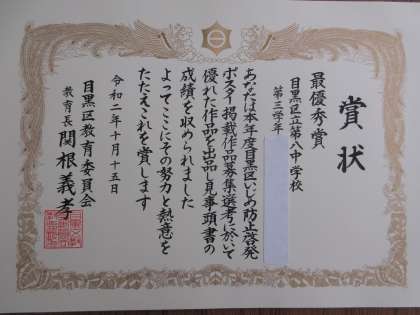 賞状
最優秀賞
目黒区立第八中学校
第三学年
あなたは本年度目黒区いじめ防止啓発
ポスター掲載作品募集選考に於いて
優れた作品を出品し見事頭書の
成績を収められました
よってここにその努力と熱意を
たたえこれを賞します
令和二年十月十五日
目黒区教育委員会
教育長 関根義孝